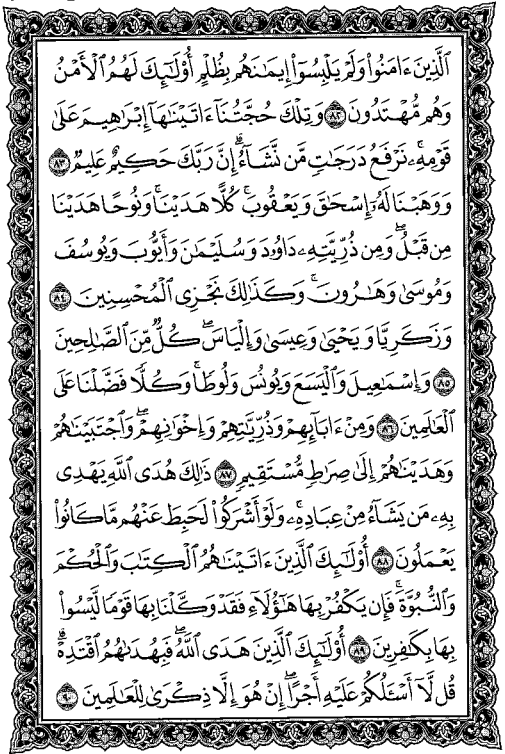 ٱلَّذِينَ ءَامَنُوا۟ وَلَمْ يَلْبِسُوٓا۟ إِيمَٰنَهُم بِظُلْمٍ أُو۟لَٰٓئِكَ لَهُمُ ٱلْأَمْنُ
وَهُم مُّهْتَدُونَ ٨٢ وَتِلْكَ حُجَّتُنَآ ءَاتَيْنَٰهَآ إِبْرَٰهِيمَ عَلَىٰ
قَوْمِهِۦ ۚ نَرْفَعُ دَرَجَٰتٍ مَّن نَّشَآءُ ۗ إِنَّ رَبَّكَ حَكِيمٌ عَلِيمٌ ٨٣
وَوَهَبْنَا لَهُۥٓ إِسْحَٰقَ وَيَعْقُوبَ ۚ كُلًّا هَدَيْنَا ۚ وَنُوحًا هَدَيْنَا
مِن قَبْلُ ۖ وَمِن ذُرِّيَّتِهِۦ دَاوُۥدَ وَسُلَيْمَٰنَ وَأَيُّوبَ وَيُوسُفَ
وَمُوسَىٰ وَهَٰرُونَ ۚ وَكَذَٰلِكَ نَجْزِى ٱلْمُحْسِنِينَ ٨٤
وَزَكَرِيَّا وَيَحْيَىٰ وَعِيسَىٰ وَإِلْيَاسَ ۖ كُلٌّ مِّنَ ٱلصَّٰلِحِينَ
٨٥ وَإِسْمَٰعِيلَ وَٱلْيَسَعَ وَيُونُسَ وَلُوطًا ۚ وَكُلًّا فَضَّلْنَا عَلَى
ٱلْعَٰلَمِينَ ٨٦ وَمِنْ ءَابَآئِهِمْ وَذُرِّيَّٰتِهِمْ وَإِخْوَٰنِهِمْ ۖ وَٱجْتَبَيْنَٰهُمْ
وَهَدَيْنَٰهُمْ إِلَىٰ صِرَٰطٍ مُّسْتَقِيمٍ ٨٧ ذَٰلِكَ هُدَى ٱللَّهِ يَهْدِى
بِهِۦ مَن يَشَآءُ مِنْ عِبَادِهِۦ ۚ وَلَوْ أَشْرَكُوا۟ لَحَبِطَ عَنْهُم مَّا كَانُوا۟
يَعْمَلُونَ ٨٨ أُو۟لَٰٓئِكَ ٱلَّذِينَ ءَاتَيْنَٰهُمُ ٱلْكِتَٰبَ وَٱلْحُكْمَ
وَٱلنُّبُوَّةَ ۚ فَإِن يَكْفُرْ بِهَا هَٰٓؤُلَآءِ فَقَدْ وَكَّلْنَا بِهَا قَوْمًا لَّيْسُوا۟
بِهَا بِكَٰفِرِينَ ٨٩ أُو۟لَٰٓئِكَ ٱلَّذِينَ هَدَى ٱللَّهُ ۖ فَبِهُدَىٰهُمُ ٱقْتَدِهْ ۗ
قُل لَّآ أَسْـَٔلُكُمْ عَلَيْهِ أَجْرًا ۖ إِنْ هُوَ إِلَّا ذِكْرَىٰ لِلْعَٰلَمِينَ ٩٠